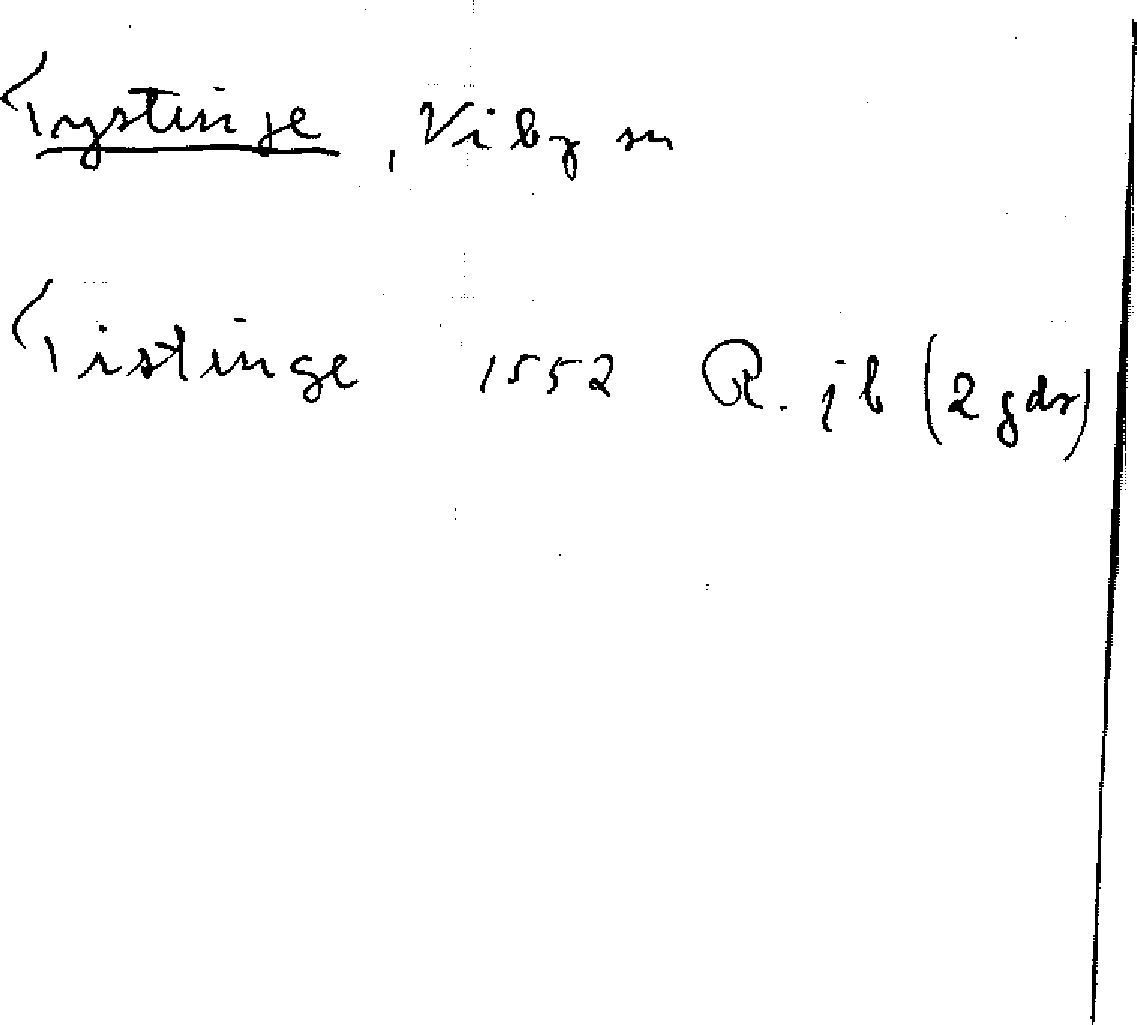 Tystinge, Viby sn
Tistinge 1552 R. jb (2 gdr)